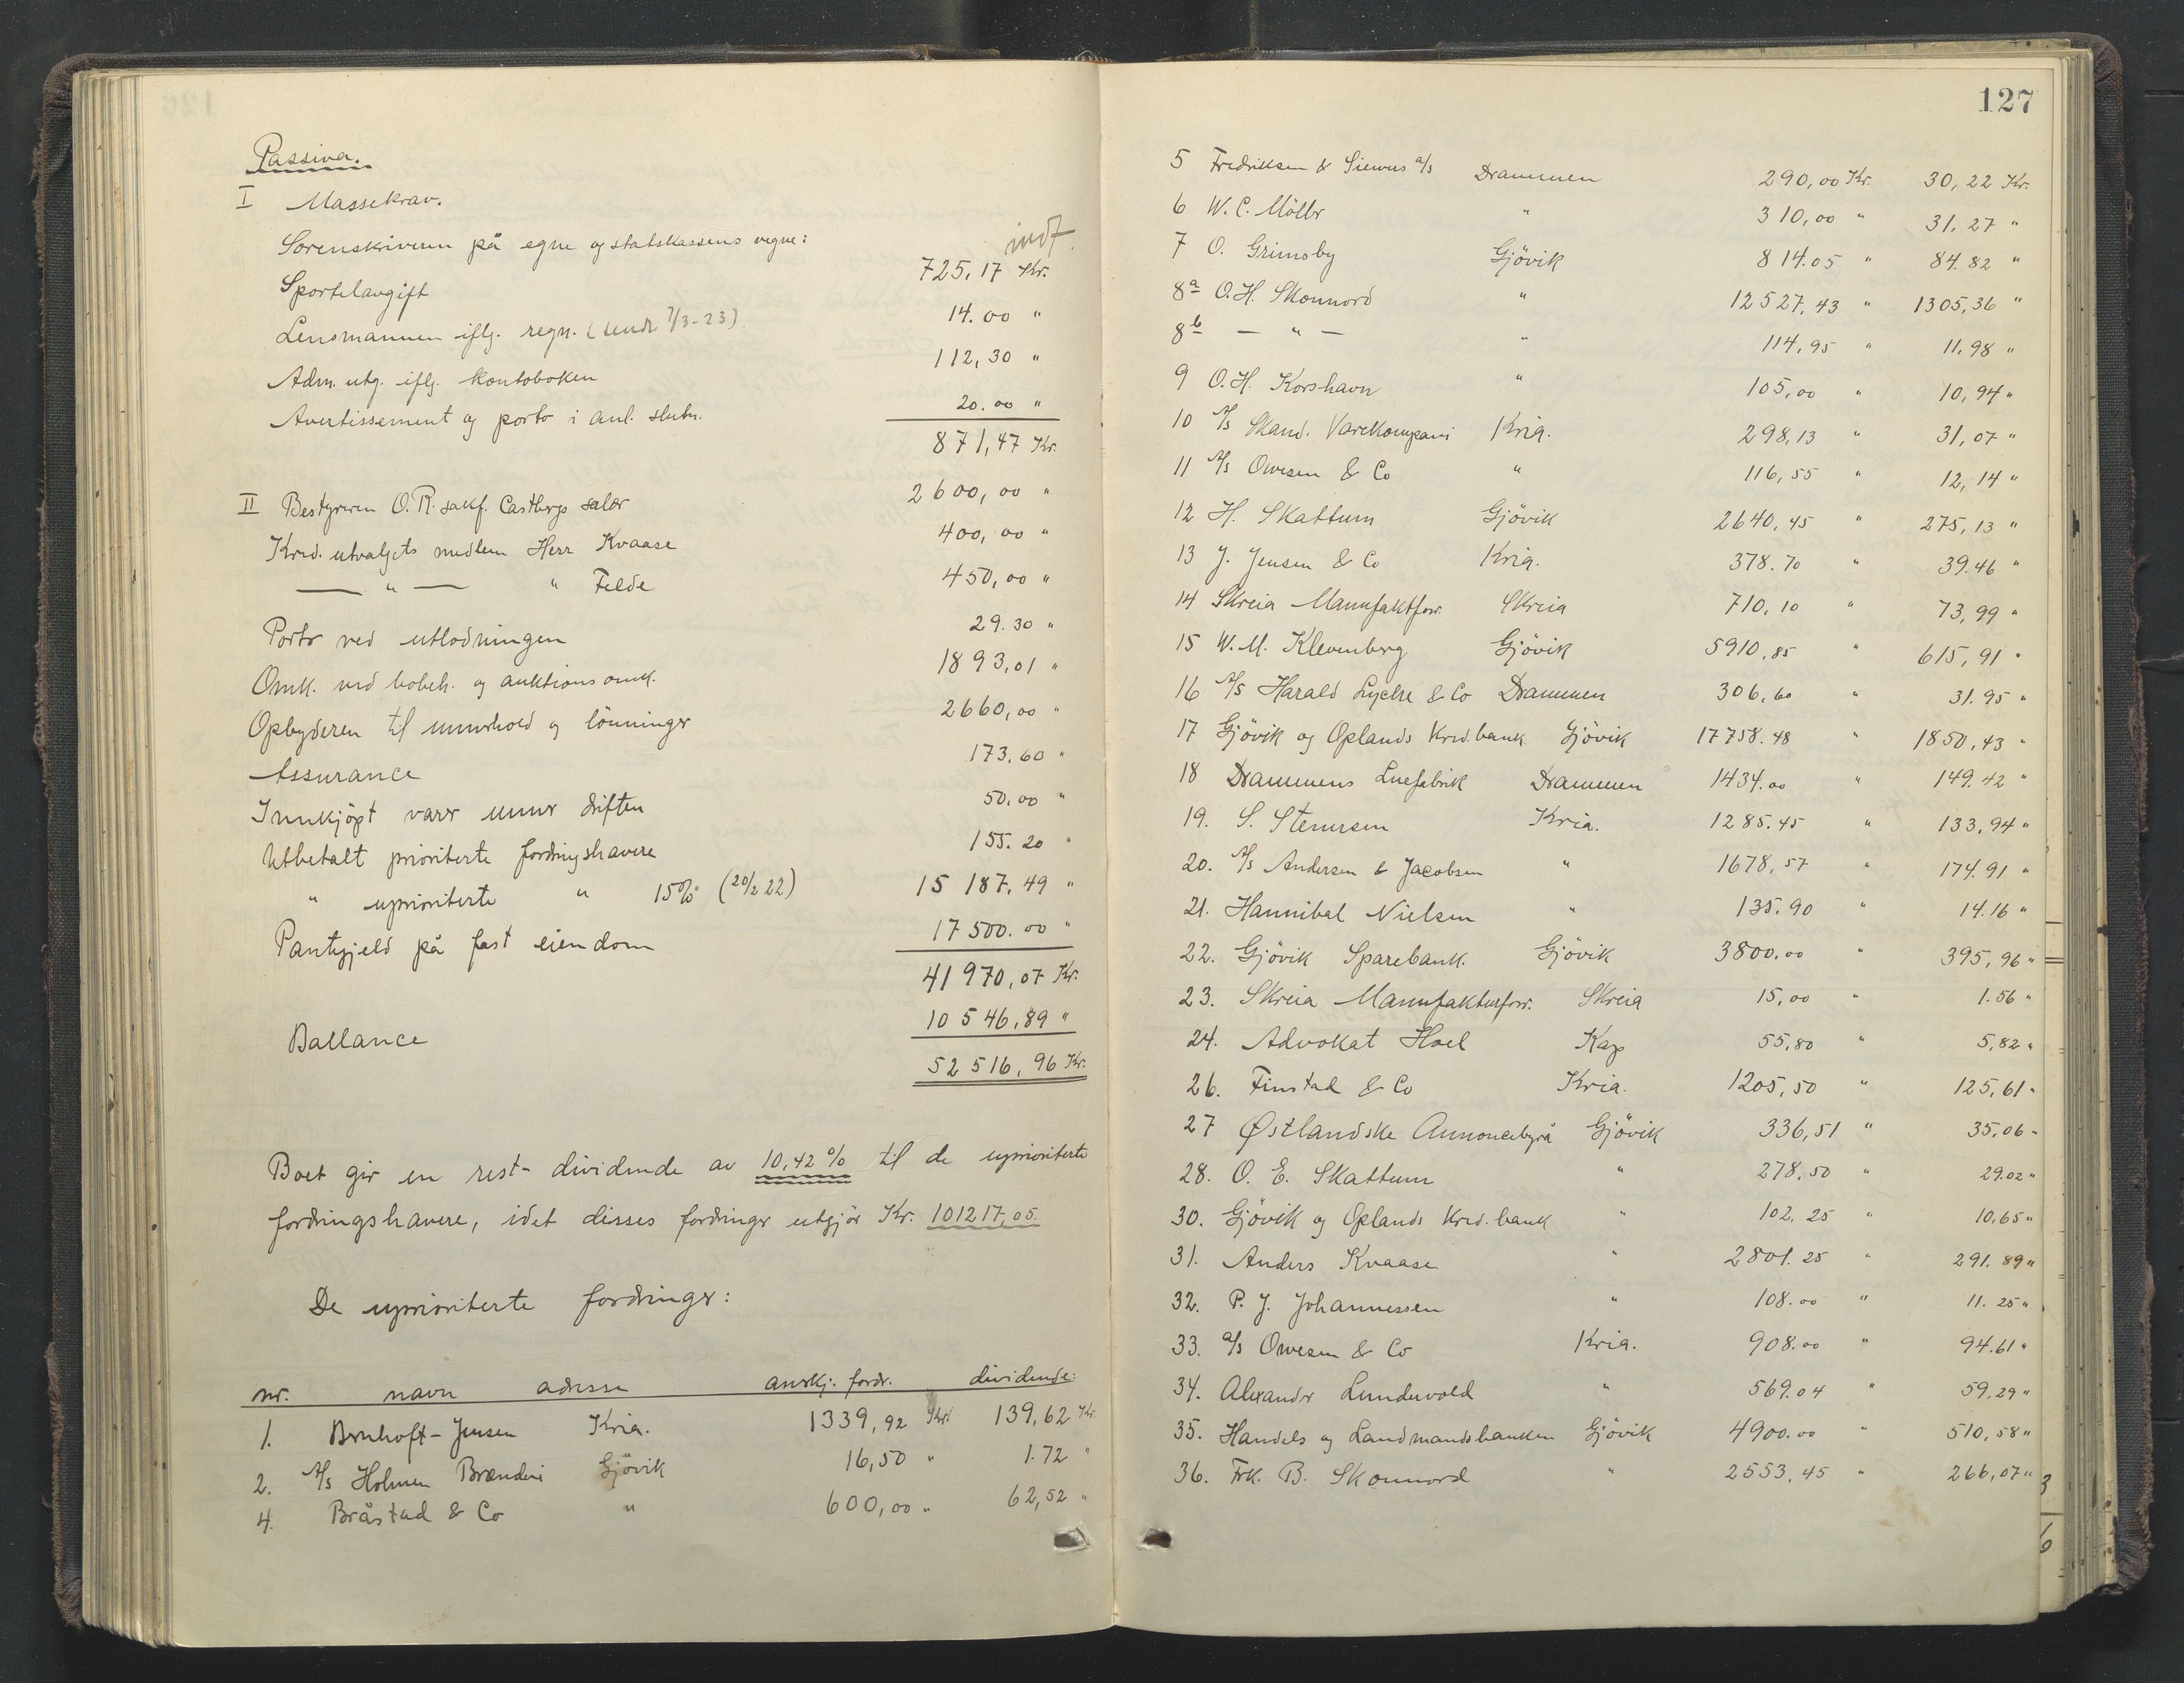 Passiva.
I Massekrav.
Sorenskriveren på egne og statskassens vegne: indt.
Sportelavgift 725,17 Kr.
Lensmannen iflg. regn. (sendt 7/3-23) 14.00 "
Adm. utg. iflg. kontoboken 112,30 "
Avertissement og porto i anl. slutn. 20.00 "
871,47 Kr.
II Bestyreren O.R. sakf. Castbergs salær 2600,00 "
Kred. utvalgets medlem Herr Kvaase 400,00 "
— " — " Felde 450,00 "
Porto ved utlodningen 29.30 "
Omk. ved bobeh. og auktionsomk. 1893,01 "
Opbyderen til unnerhold og lönninger 2660,00 "
Assurance 173,60 "
Innkjöpt varer unner driften 50.00 "
Utbetalt prioriterte fordringshavere 155.20 "
" uprioriterte " 15% (20/2 22) 15 187,49 "
Pantgjeld på fast eiendom 17 500.00 "
41 970,07 Kr.
Ballance 10 546,89 "
52 516,96 Kr.
Boet gir en rest-dividende av 10,42 % til de uprioriterte
fordringshavere, idet disses fordringer utgjör Kr. 101217,05.
De uprioriterte fordringer:
nr. navn adresse anerkj. fordr. dividende:
1. Bruhoft-Jensen Kria. 1339,92 Kr. 139,62 Kr.
2. A/s Holmen Brænderi Gjövik 16,50 " 1.72 "
4. Bråstad & Co " 600,00 " 62,52 "
127
5 Fredriksen & Siewers a/s Drammen 290,00 Kr. 30,22 Kr.
6 W.C. Möller " 310,00 " 31.27 "
7 O. Grimsby Gjövik 814.05 " 84.82 "
8a O.H. Skonnord " 12527,43 " 1305,36 "
8b — " — " 114,95 " 11,98 "
9 O.H. Korshavn " 105,00 " 10,94 "
10 A/s Skand. Varekompani Kria. 298,13 " 31,07 "
11 A/s Owesen & Co " 116,55 " 12,14 "
12 H. Skattum Gjövik 2640,45 " 275,13 "
13 J. Jensen & Co Kria. 378.70 " 39.46 "
14 Skreia Manufaktforr. Skreia 710,10 " 73,99 "
15 W.M. Klevenberg Gjövik 5910,85 " 615,91 "
16 A/s Harald Lyche & Co Drammen 306,60 " 31.95 "
17 Gjövik og Oplands Kred.bank Gjövik 17758.48 " 1850,43 "
18 Drammens Luefabrik Drammen 1434.00 " 149.42 "
19. S. Stenersen Kria. 1285.45 " 133,94 "
20. A/s Andersen & Jacobsen " 1678,57 " 174.91 "
21. Hannibal Nielsen " 135.90 " 14.16 "
22. Gjövik Sparebank. Gjövik 3800.00 " 395,96 "
23. Skreia Manufakturforr. Skreia 15,00 " 1.56 "
24. Advokat Hoel Kap 55,80 " 5,82 "
26. Finstad & Co Kria. 1205,50 " 125,61 "
27 Østlandske Annoncebyrå Gjövik 336,51 " 35,06 "
28. O. E. Skattum " 278,50 " 29.02 "
30. Gjövik og Oplands Kred.bank " 102,25 " 10,65 "
31. Anders Kvaase " 2801.25 " 291.89 "
32. P. J. Johannessen " 108.00 " 11.25 "
33. a/s Owesen & Co Kria. 908.00 " 94.61 "
34. Alexander Lundevold " 569.04 " 59.29 "
35. Handels og Landmandsbanken Gjövik 4900.00 " 510,58 "
36. Frk. B. Skonnord " 2553,45 " 266,07 "